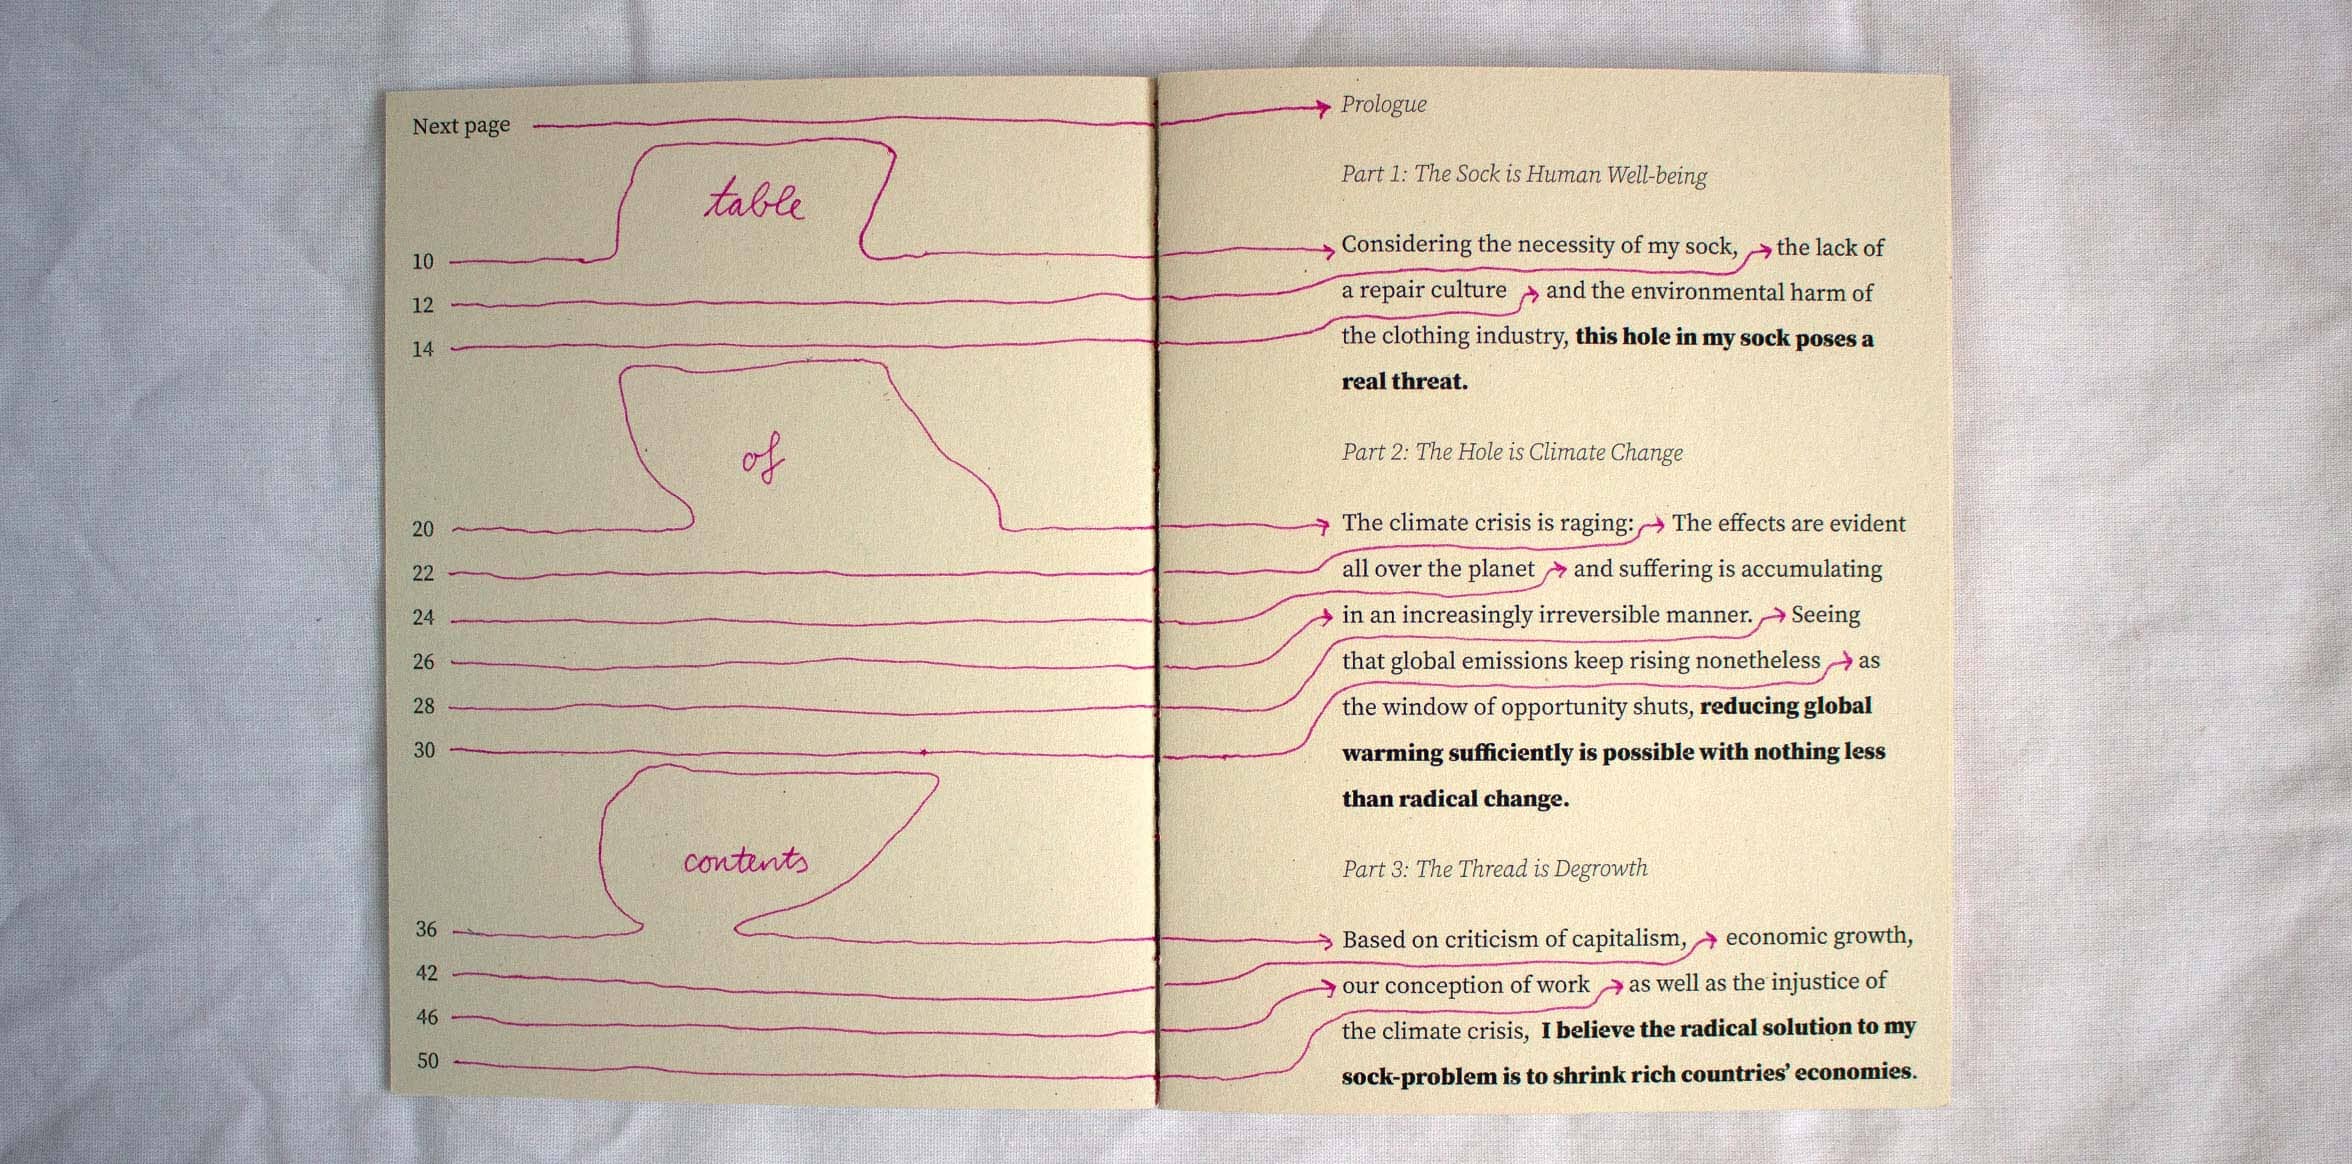 Next page
table
10
12
14
of
20
22
24
26
28
30
contents
36
42
46
50
Prologue
Part 1: The Sock is Human Well-being
Considering the necessity of my sock, the lack of
a repair culture and the environmental harm of
the clothing industry, this hole in my sock poses a
real threat.
Part 2: The Hole is Climate Change
The climate crisis is raging: The effects are evident
all over the planet and suffering is accumulating
in an increasingly irreversible manner. Seeing
that global emissions keep rising nonetheless as
the window of opportunity shuts, reducing global
warming sufficiently is possible with nothing less
than radical change.
Part 3: The Thread is Degrowth
Based on criticism of capitalism, economic growth,
our conception of work as well as the injustice of
the climate crisis, I believe the radical solution to my
sock-problem is to shrink rich countries’ economies.